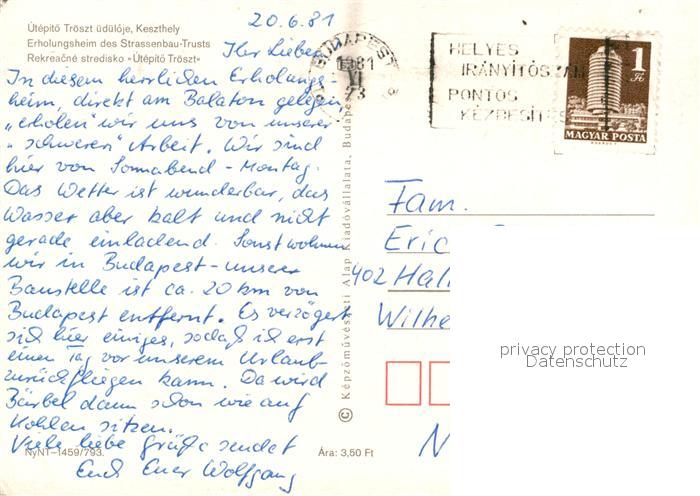 Útépitő Tröszt üdülője, Keszthely
Erholungsheim des Strassenbau-Trusts
Rekreačné stredisko »Útépitő Tröszt«
20.6.81
Ihr Lieben
In diesem herrlichen Erholungs-
heim, direkt am Balaton gelegen
„erholen" wir uns von unserer
„schweren" Arbeit. Wir sind
hier von Sonnabend - Montag.
Das Wetter ist wunderbar, das
Wasser aber kalt und nicht
gerade einladend. Sonst wohnen
wir in Budapest - unsere
Baustelle ist ca. 20 km von
Budapest entfernt. Es verzögert
sich hier einiges, sodaß ich erst
einen Tag vor unserem Urlaub
zurückfliegen kann. Da wird
Bärbel dann schon wie auf
Kohlen sitzen.
Viele liebe Grüße sendet
Euch Euer Wolfgang
NyNT–1459/793.
Ára: 3,50 Ft
© Képzőművészeti Alap Kiadóvállalata, Budapest
BUDAPEST
1981
VI
23
HELYES
IRÁNYÍTÓSZÁM
PONTOS
KÉZBESÍTÉS
1
Ft
MAGYAR POSTA
Fam.
Eric
402 Hal
Wilhe
N
privacy protection
Datenschutz